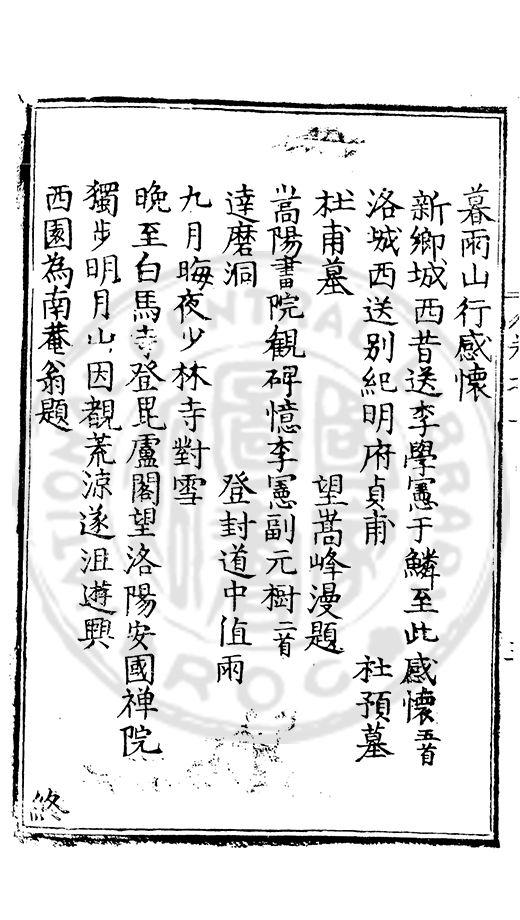 暮雨山行感懷
新鄉城西昔送李學憲于鱗至此感懷五首
洛城西送別紀明府貞甫 杜預墓
杜甫墓 望嵩峰漫題
嵩陽書院觀碑憶李憲副元樹二首
達磨洞 登封道中值雨
九月晦夜少林寺對雪
晚至白馬寺登毘盧閣望洛陽安國禅院
獨步明月山因觀荒涼遂沮遊興
西園為南菴翁題
終